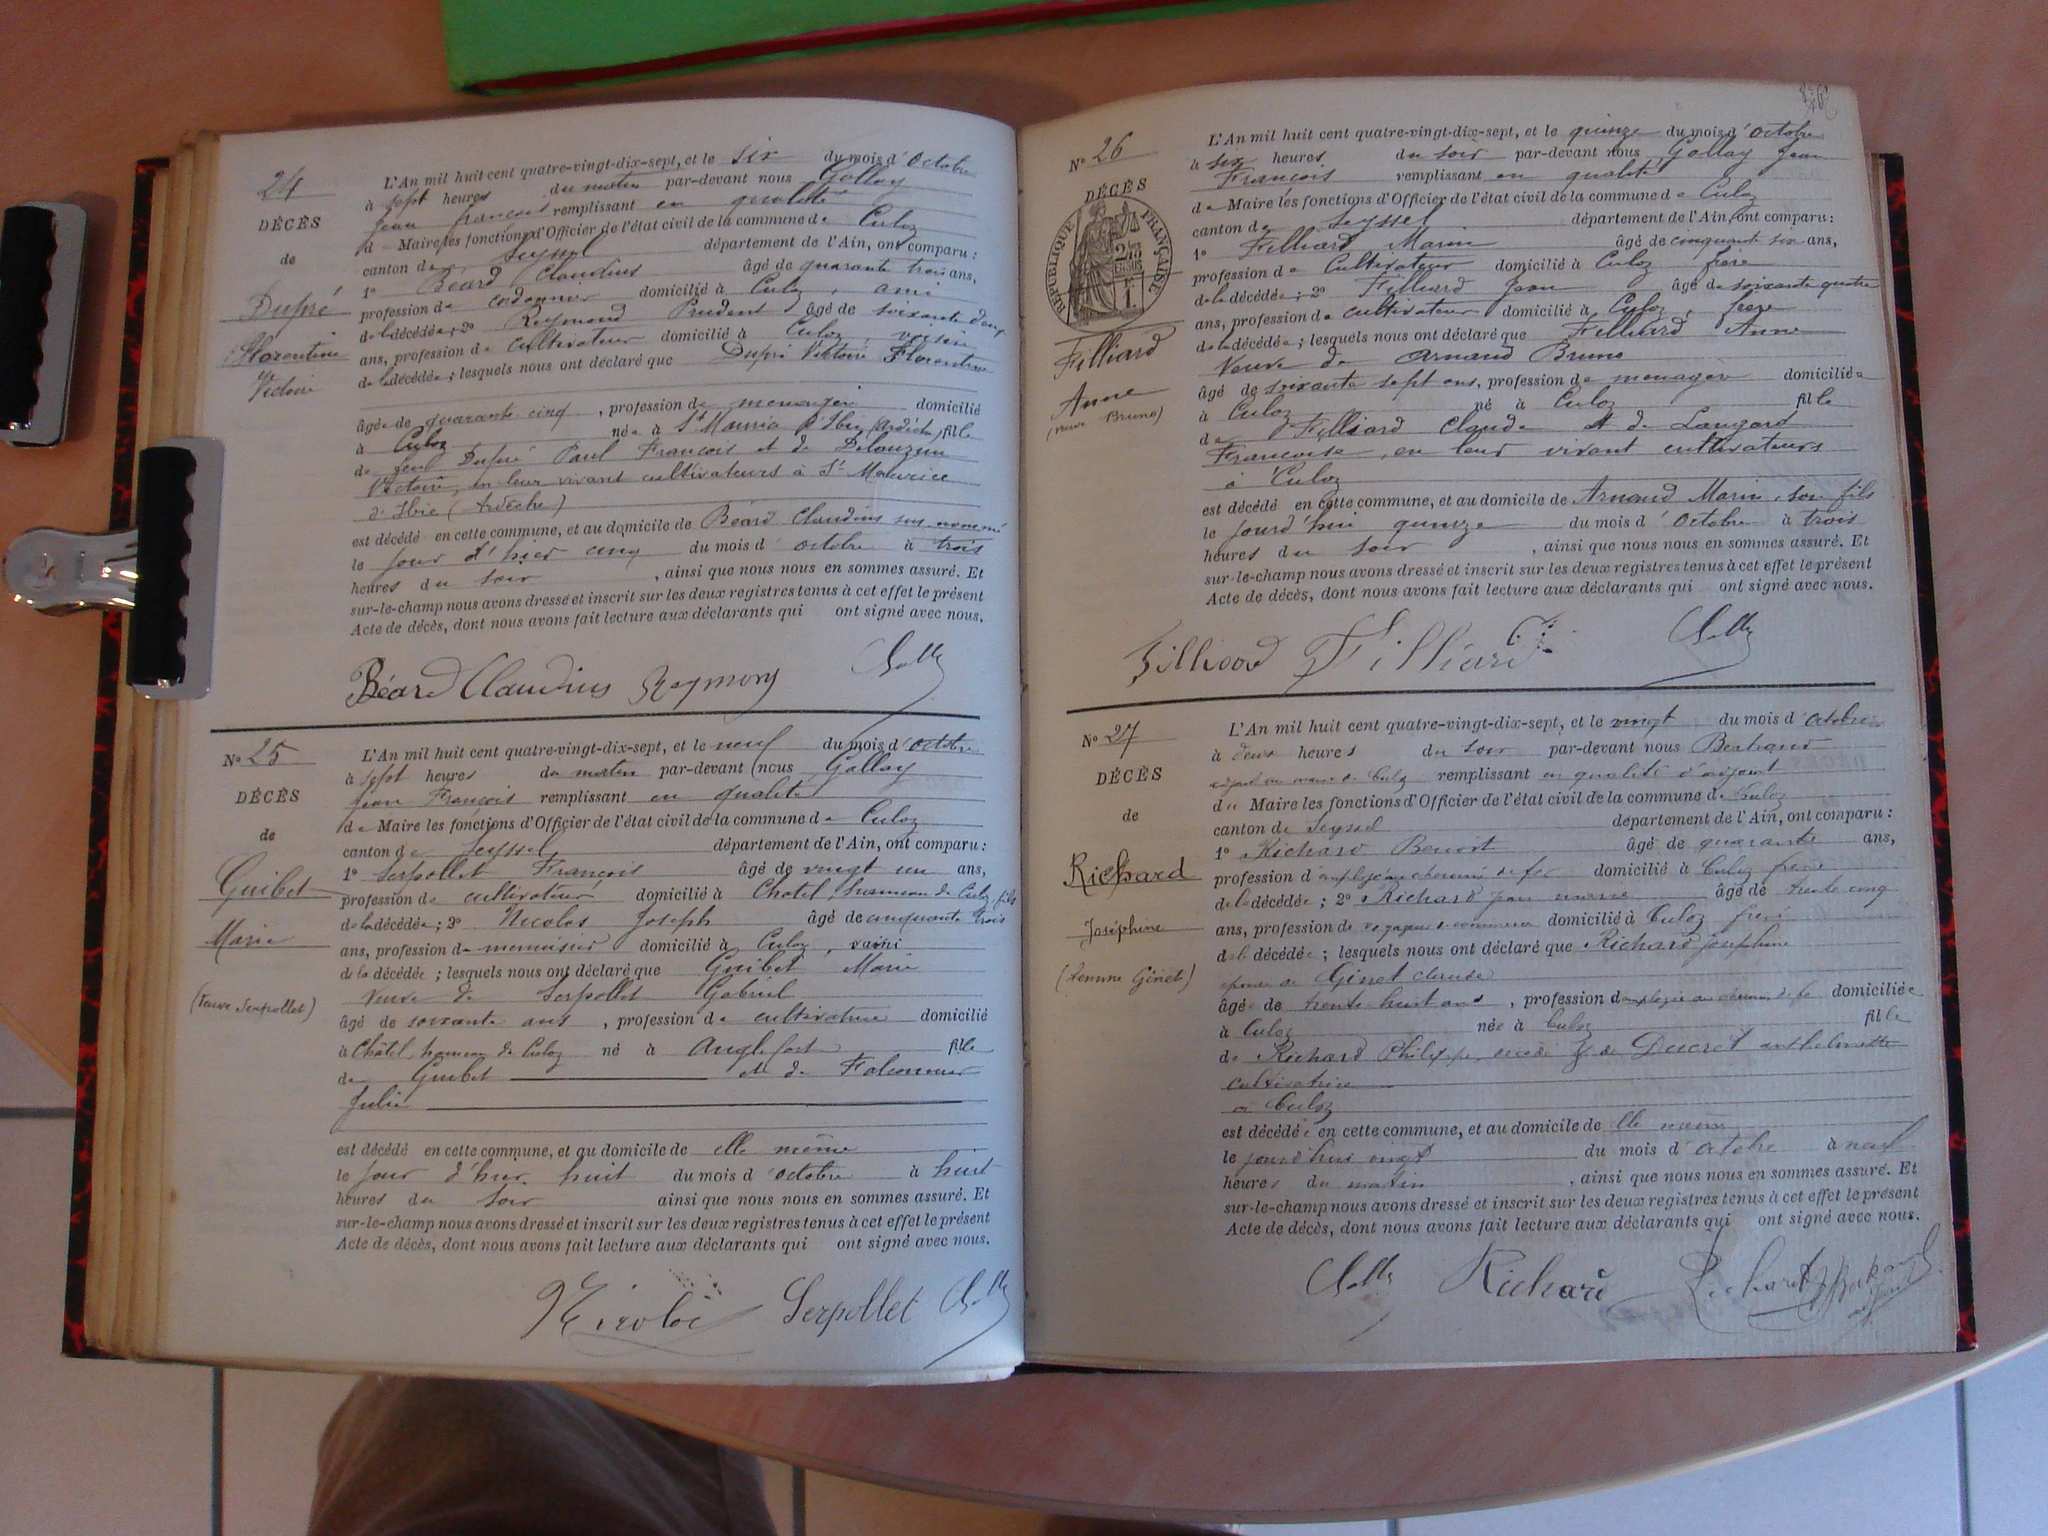 24
DÉCÈS
de
Dupré
Florentine
Victoire
L'An mil huit cent quatre-vingt-dix-sept, et le six du mois d'octobre
à sept heures du matin par-devant nous Gallay
Jean François remplissant en qualité
de Maire les fonctions d'Officier de l'état civil de la commune de Culoz
canton de Seyssel département de l'Ain, ont comparu :
1° Béard Claudius âgé de quarante trois ans,
profession de cordonnier domicilié à Culoz, ami
de la décédée ; 2° Reymond Prudent âgé de soixante deux
ans, profession de cultivateur domicilié à Culoz, voisin
de la décédée ; lesquels nous ont déclaré que Dupré Victoire Florentine
âgée de quarante cinq, profession de menagère domicilié
à Culoz née à St Maurice d'Ibie (Ardèche) fille
de feu Dupré Paul François et de Delauzun
Victoire, en leur vivant cultivateurs à St Maurice
d'Ibie (Ardèche)
est décédé en cette commune, et au domicile de Béard Claudius sus nommé
le jour d'hier cinq du mois d'octobre à trois
heures du soir, ainsi que nous nous en sommes assuré. Et
sur-le-champ nous avons dressé et inscrit sur les deux registres tenus à cet effet le présent
Acte de décès, dont nous avons fait lecture aux déclarants qui ont signé avec nous.
Béard Claudius Reymond
N° 25
DÉCÈS
de
Guibet
Marie
(veuve Serpollet)
L'An mil huit cent quatre-vingt-dix-sept, et le neuf du mois d'octobre
à sept heures du matin par-devant nous Gallay
Jean François remplissant en qualité
de Maire les fonctions d'Officier de l'état civil de la commune de Culoz
canton de Seyssel département de l'Ain, ont comparu :
1° Serpollet François âgé de vingt un ans,
profession de cultivateur domicilié à Chatel, hameau de Culoz fils
de la décédée ; 2° Nicolas Joseph âgé de cinquante trois
ans, profession de menuisier domicilié à Culoz, voisin
de la décédée ; lesquels nous ont déclaré que Guibet Marie
Veuve de Serpollet Gabriel
âgé de soixante ans, profession de cultivatrice domicilié
à Châtel, hameau de Culoz né à Anglefort fille
de Guibet et de Falconnier
Julie
est décédé en cette commune, et au domicile de elle même
le jour d'hier huit du mois d'octobre à huit
heures du soir ainsi que nous nous en sommes assuré. Et
sur-le-champ nous avons dressé et inscrit sur les deux registres tenus à cet effet le présent
Acte de décès, dont nous avons fait lecture aux déclarants qui ont signé avec nous.
Serpollet
N° 26
DÉCÈS
RÉPUBLIQUE FRANÇAISE
Filliard
Anne
(veuve Bruno)
L'An mil huit cent quatre-vingt-dix-sept, et le quinze du mois d'octobre
à six heures du soir par-devant nous Gallay Jean
François remplissant en qualité
de Maire les fonctions d'Officier de l'état civil de la commune de Culoz
canton de Seyssel département de l'Ain, ont comparu :
1° Filliard Marin âgé de cinquante six ans,
profession de Cultivateur domicilié à Culoz frère
de la décédée ; 2° Filliard Jean âgé de soixante quatre
ans, profession de cultivateur domicilié à Culoz, frère
de la décédée ; lesquels nous ont déclaré que Filliard Anne
Veuve de Arnaud Bruno
âgé de soixante sept ans, profession de menagère domiciliée
à Culoz né à Culoz fille
de Filliard Claude et de Langard
Françoise, en leur vivant cultivateurs
à Culoz
est décédé en cette commune, et au domicile de Arnaud Marin, son fils
le jourd'hui quinze du mois d'octobre à trois
heures du soir, ainsi que nous nous en sommes assuré. Et
sur-le-champ nous avons dressé et inscrit sur les deux registres tenus à cet effet le présent
Acte de décès, dont nous avons fait lecture aux déclarants qui ont signé avec nous.
Filliard Filliard
N° 27
DÉCÈS
de
Richard
Joséphine
(femme Ginet)
L'An mil huit cent quatre-vingt-dix-sept, et le vingt du mois d'octobre
à deux heures du soir par-devant nous Bertrand
adjoint au maire de Culoz remplissant en qualité d'adjoint
du Maire les fonctions d'Officier de l'état civil de la commune de Culoz
canton de Seyssel département de l'Ain, ont comparu :
1° Richard Benoit âgé de quarante ans,
profession d'employé au chemin de fer domicilié à Culoz frère
de la décédée ; 2° Richard Jean marie âgé de trente cinq
ans, profession de voyageur de commerce domicilié à Culoz frère
de la décédée ; lesquels nous ont déclaré que Richard Joséphine
épouse de Ginet claude
âgée de trente huit ans, profession d'employée au chemin de fer domiciliée
à Culoz née à Culoz fille
de Richard Philippe, décédé et de Ducret anthelmette
cultivatrice
à Culoz
est décédé en cette commune, et au domicile de elle même
le jourd'hui vingt du mois d'octobre à neuf
heures du matin, ainsi que nous nous en sommes assuré. Et
sur-le-champ nous avons dressé et inscrit sur les deux registres tenus à cet effet le présent
Acte de décès, dont nous avons fait lecture aux déclarants qui ont signé avec nous.
Richard Richard